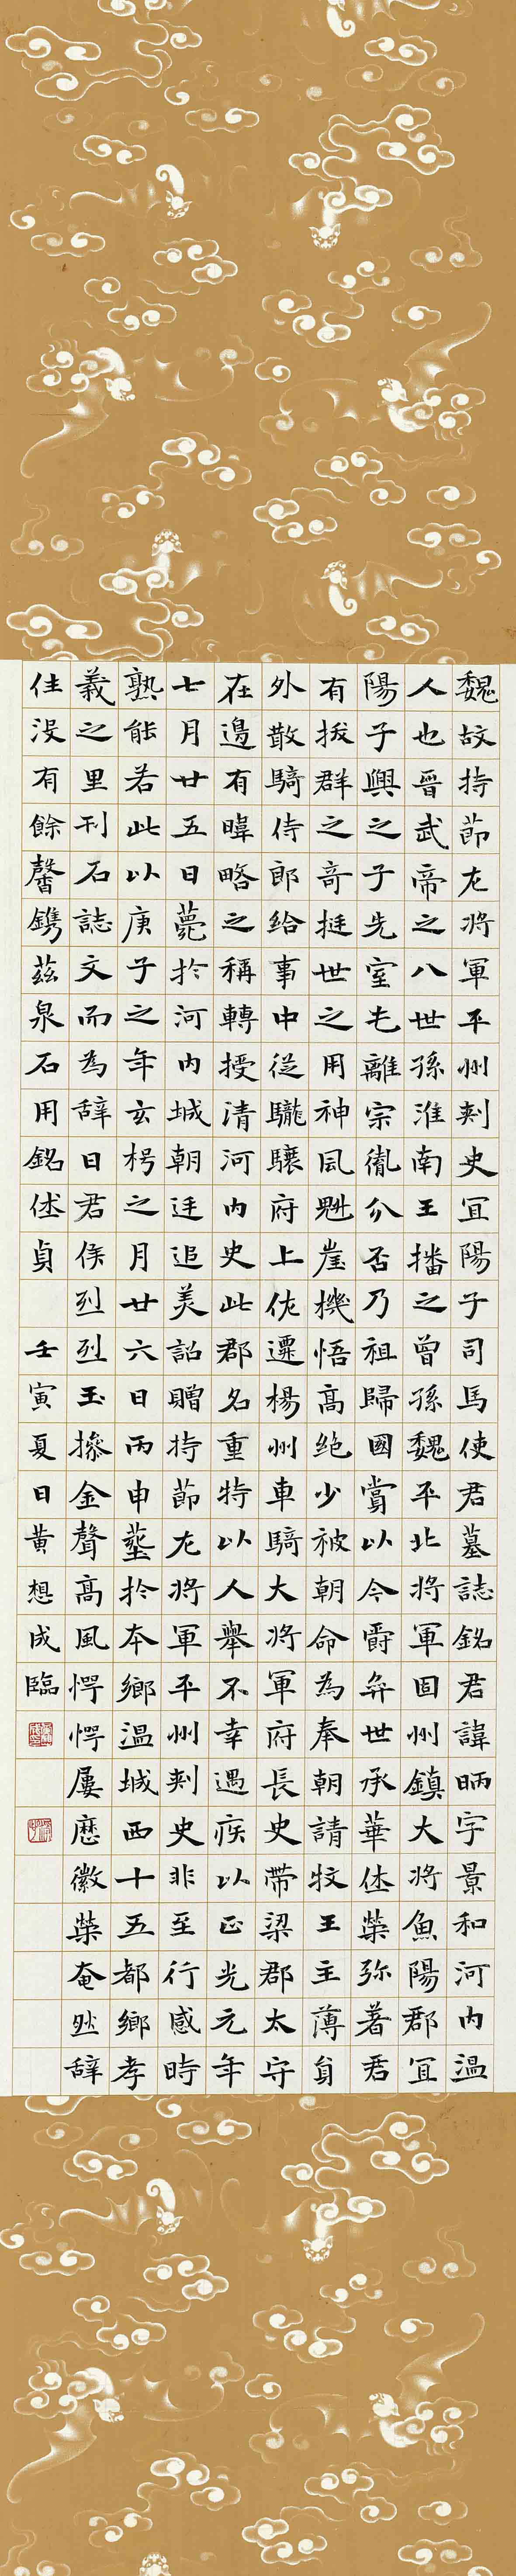 魏故持節左將軍平州刺史宜陽子司馬使君墓誌銘君諱昞字景和河内温
人也晉武帝之八世孫淮南王播之曾孫魏平北將軍固州鎮大將魚陽郡宜
陽子興之子先室乇離宗胤分否乃祖歸國賞以今爵弈世承華休榮弥著君
有拔群之奇挺世之用神風魁崖機悟高絶少被朝命為奉朝請牧王主薄員
外散騎侍郎給事中從驪驤府上佐遷楊州車騎大將軍府長史帶梁郡太守
在邊有暐略之稱轉授清河内史此郡名重特以人舉不幸遇疾以正光元年
七月廿五日薨於河内城朝廷追美詔贈持節左將軍平州刺史非至行感時
熟能若此以庚子之年玄枵之月廿六日丙申葬於本鄉温城西十五都鄉孝
義之里刊石誌文而為辞曰君侯烈烈玉摻金聲高風愕愕屢歷徽榮奄然辞
住没有餘馨鐫茲泉石用銘休貞
壬寅夏日黄想成臨